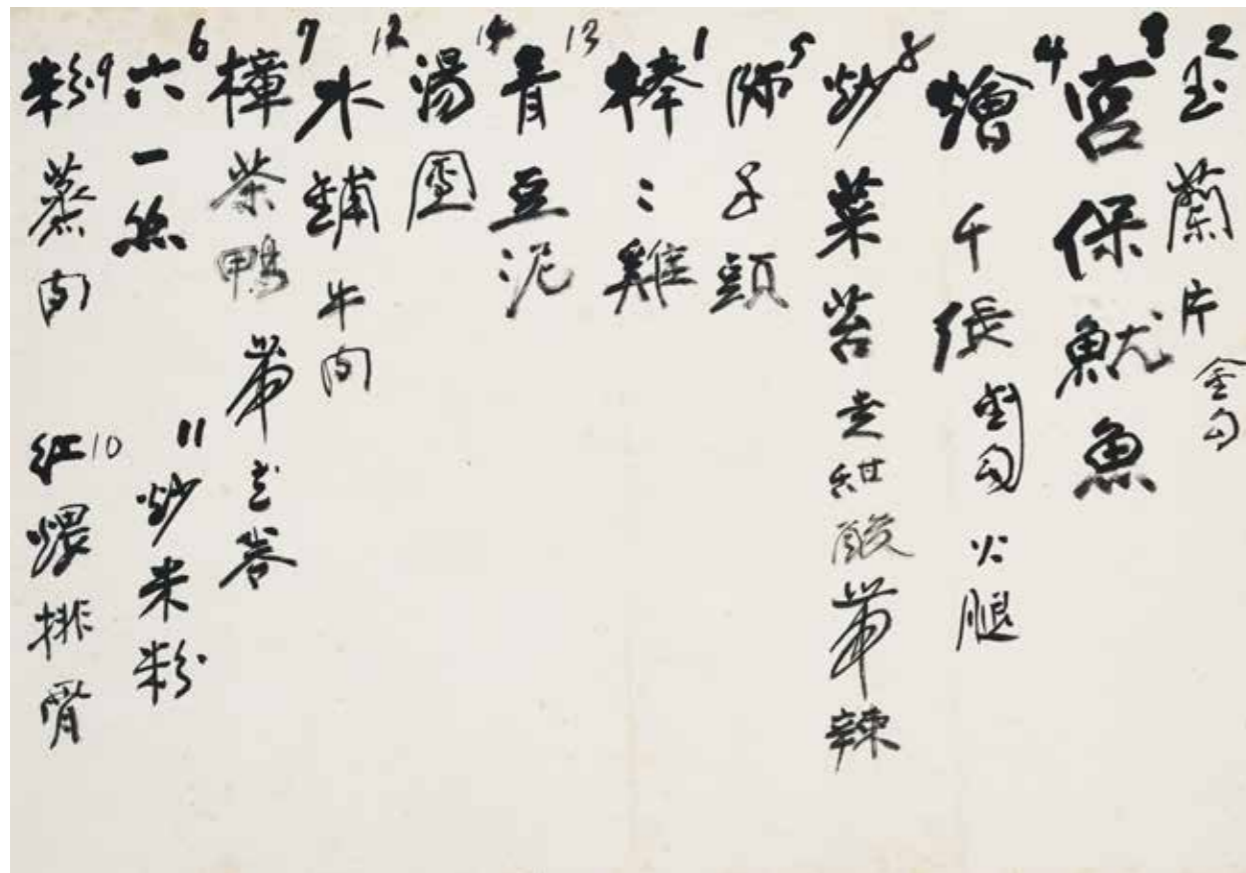 2 玉蘭片 金勾
3 宮保魷魚
4 燴千張 勾火腿
8 炒菜苔 走甜酸帶辣
5 獅子頭
1 棒〻雞
13 青豆泥
14 湯圓
12 水鋪牛肉
7 樟茶鴨 帶卷
6 六一絲
11 炒米粉
9 粉蒸肉
10 紅煨排骨